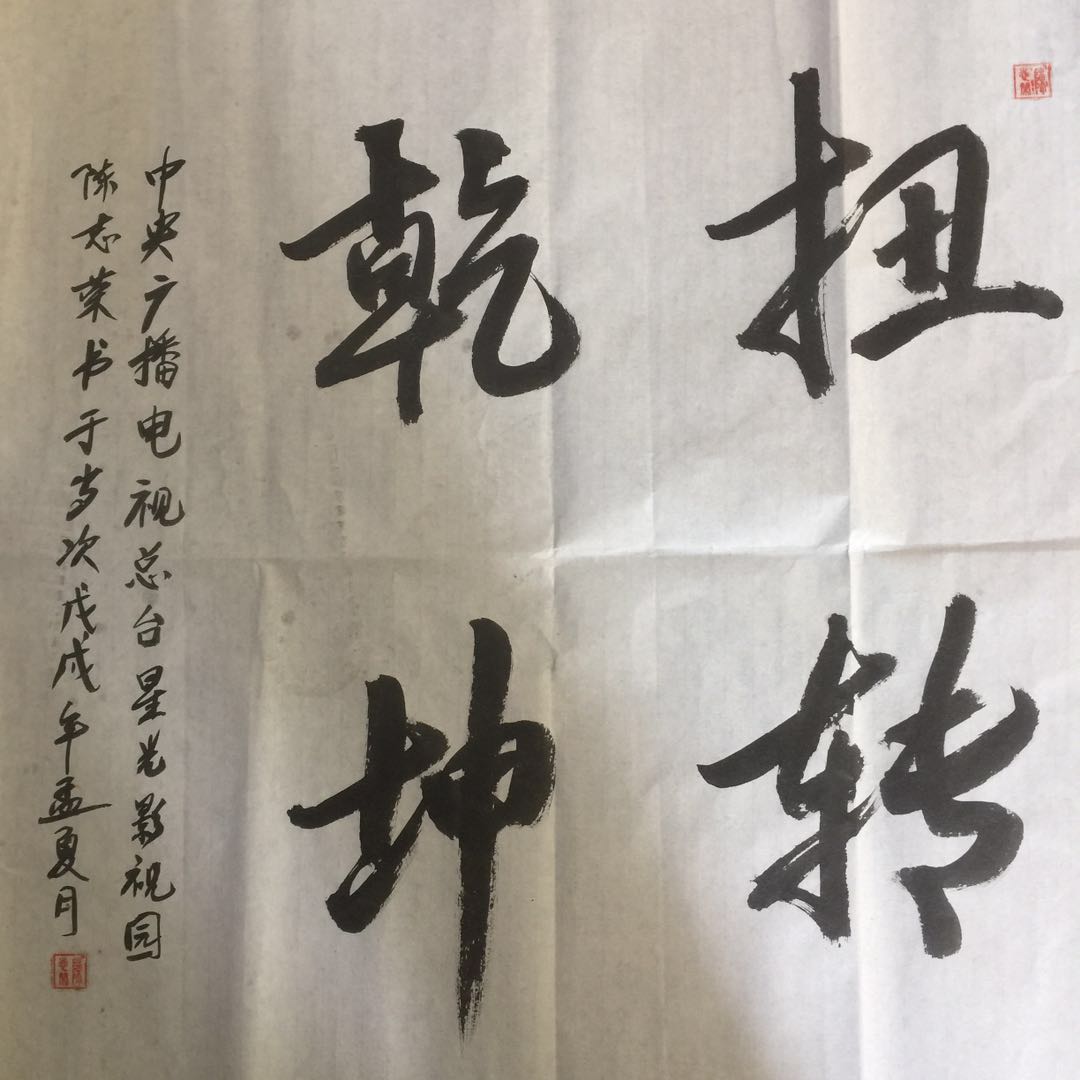 扭转
乾坤
中央广播电视总台星光影视园
陈志荣书于岁次戊戌年孟夏月